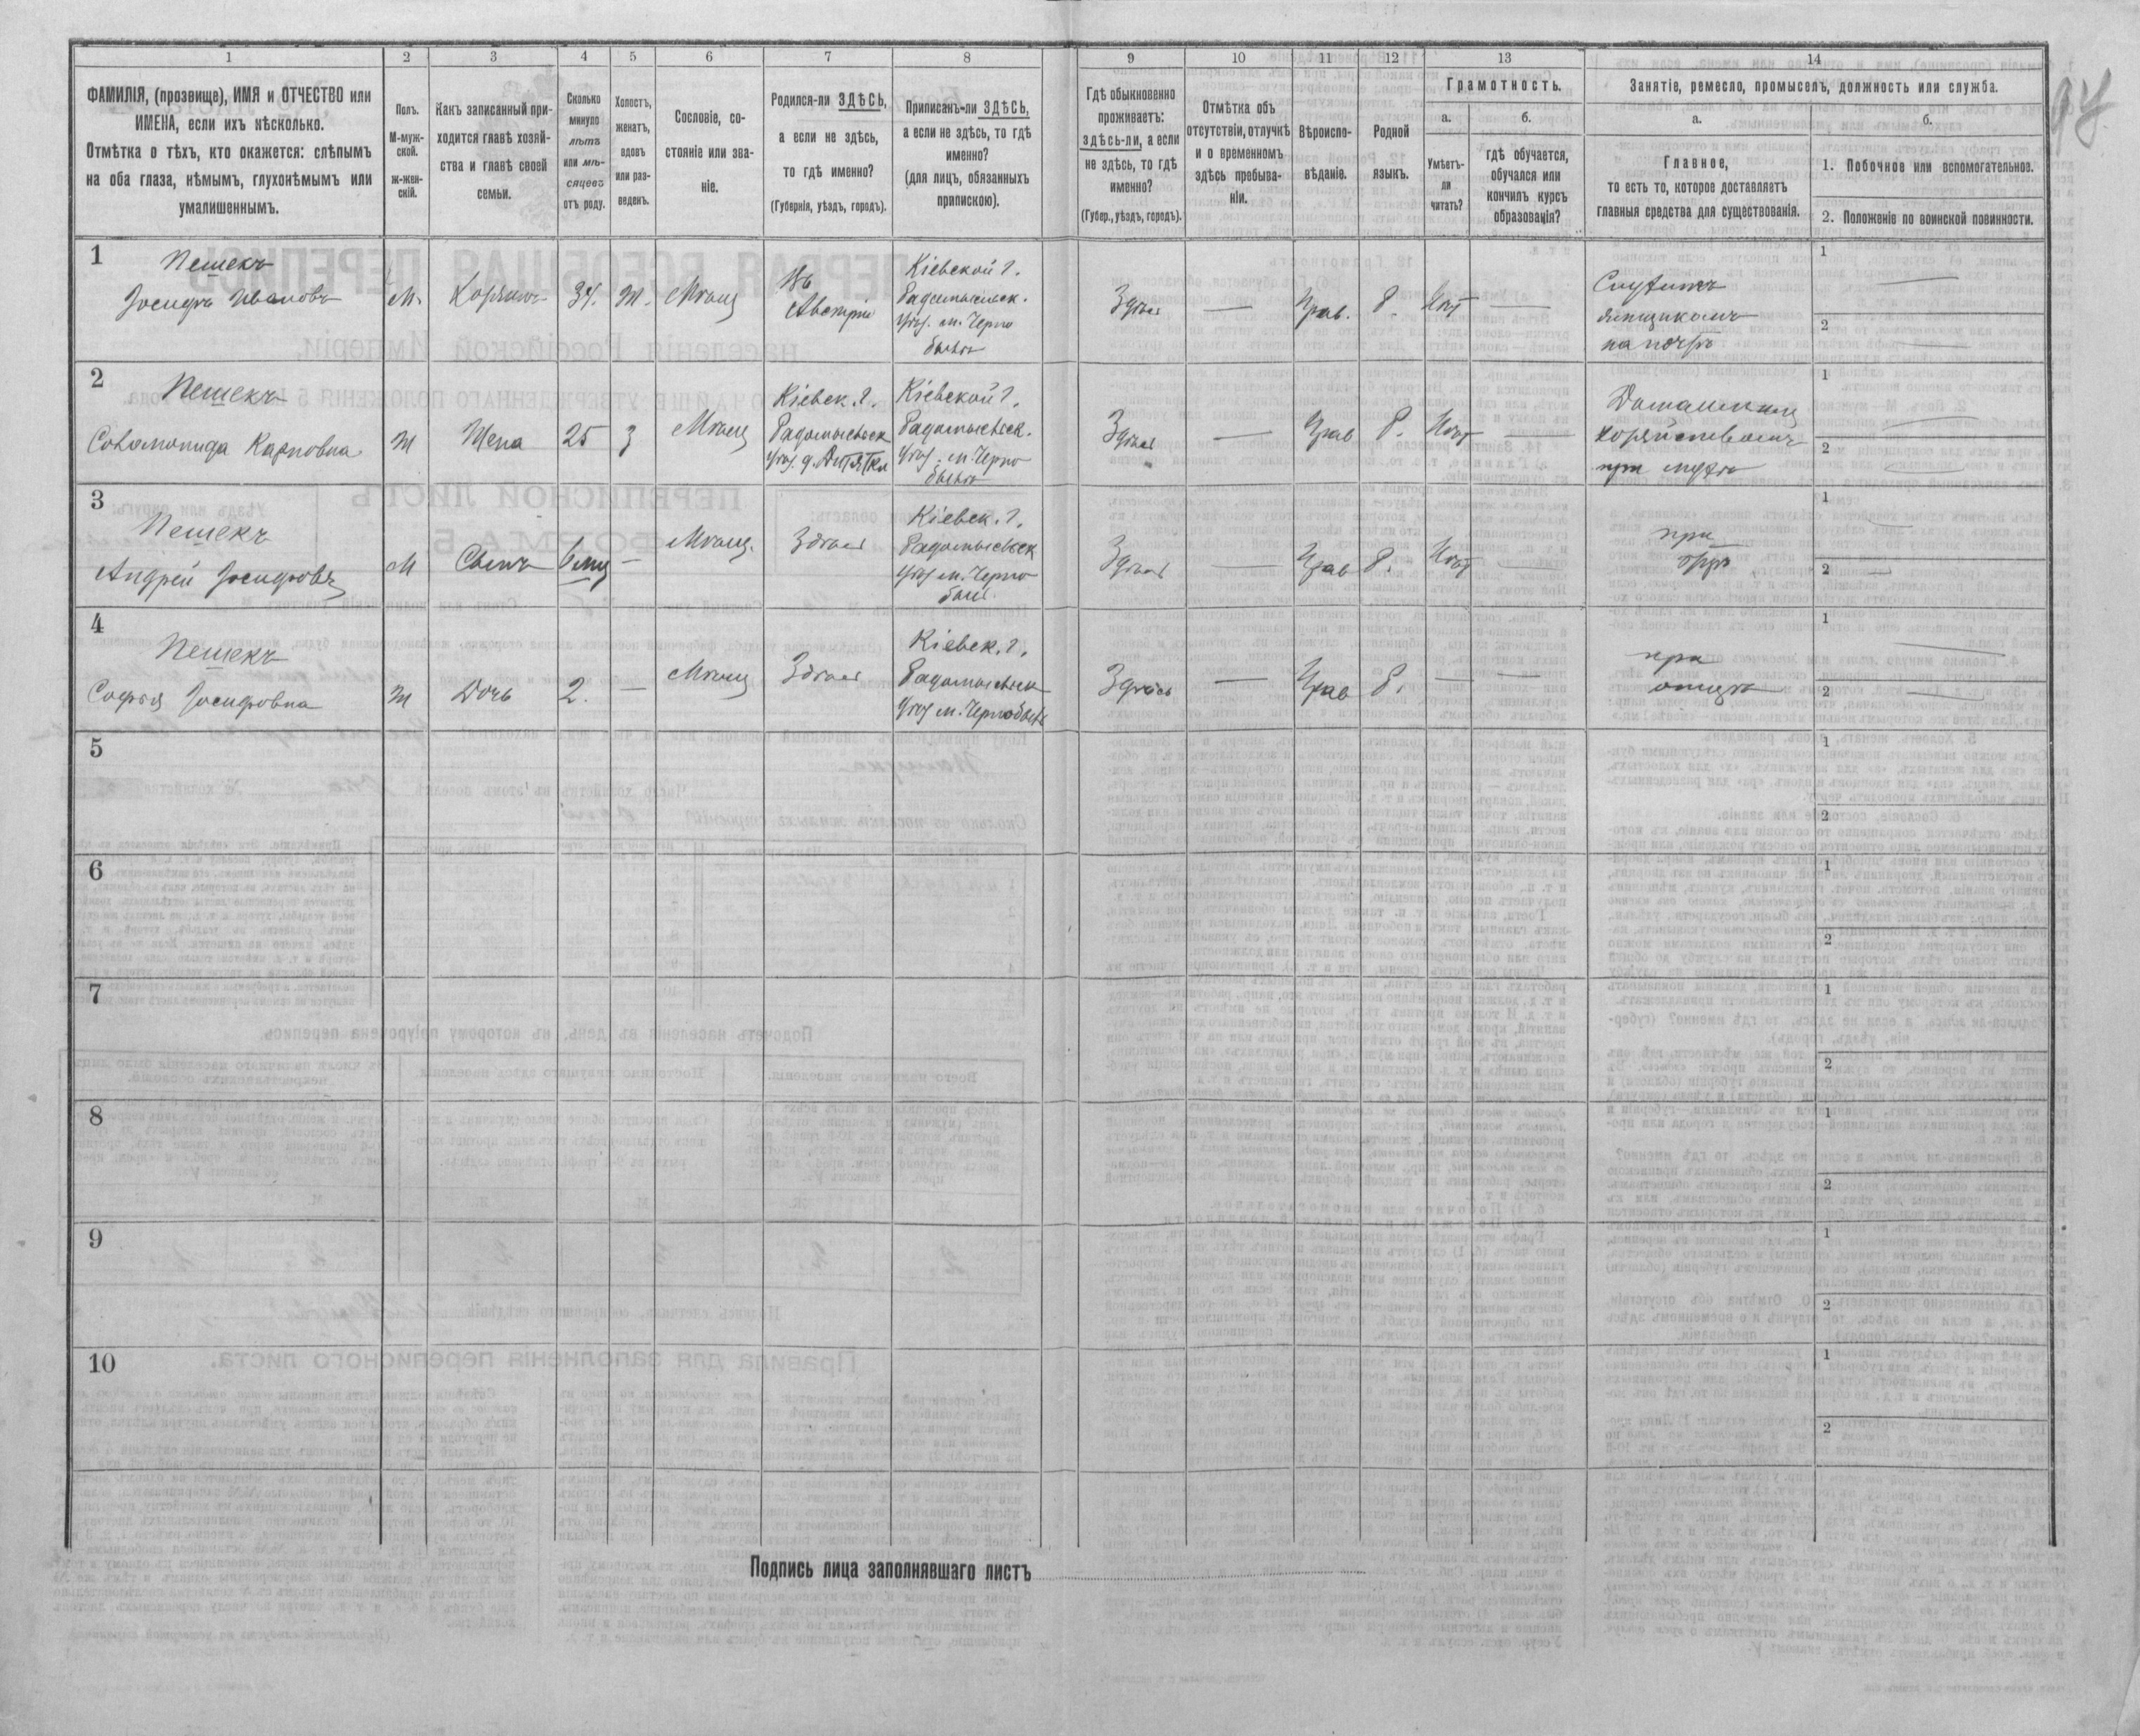 1
2
3
4
5
6
7
8
9
10
11
12
13
14
ФАМИЛІЯ, (прозвище), ИМЯ и ОТЧЕСТВО или
ИМЕНА, если ихъ нѣсколько.
Отмѣтка о тѣхъ, кто окажется: слѣпымъ
на оба глаза, нѣмымъ, глухонѣмымъ или
умалишеннымъ.
Полъ.
М-муж-
ской.
ж-жен-
скій.
Какъ записанный при-
ходится главѣ хозяй-
ства и главѣ своей
семьи.
Сколько
минуло
лѣтъ
или мѣ-
сяцевъ
отъ роду.
Холостъ,
женатъ,
вдовъ
или раз-
веденъ.
Сословіе, со-
стояніе или зва-
ніе.
Родился-ли ЗДѢСЬ,
а если не здѣсь,
то гдѣ именно?
(Губернія, уѣздъ, городъ).
Приписанъ-ли ЗДѢСЬ,
а если не здѣсь, то гдѣ
именно?
(для лицъ, обязанныхъ
припискою).
Гдѣ обыкновенно
проживаетъ:
здѣсь-ли, а если
не здѣсь, то гдѣ
именно?
(Губер., уѣздъ, городъ).
Отмѣтка объ
отсутствіи, отлучкѣ
и о временномъ
здѣсь пребыва-
ніи.
Вѣроиспо-
вѣданіе.
Родной
языкъ.
Грамотность.
а.
Умѣетъ-
ли
читать?
б.
гдѣ обучается,
обучался или
кончилъ курсъ
образованія?
Занятіе, ремесло, промыселъ, должность или служба.
а.
Главное,
то есть то, которое доставляетъ
главныя средства для существованія.
б.
1. Побочное или вспомогательное.
2. Положеніе по воинской повинности.
94
1
Пешекъ
Іосифъ Ивановъ
М.
Хозяинъ
34.
Ж.
Мѣщ
Въ
Австріи
Кіевской г.
Радомысльск.
уѣз. м. Черно
былѣ
Здѣсь
—
Прав.
Р.
Нѣт
—
Служитъ
ямщикомъ
на почтѣ
1 —
2 —
2
Пешекъ
Соломонида Карповна
Ж
Жена
25
З
Мѣщ
Кіевск. г.
Радомысльск
уѣз. д. Дитятки
Кіевской г.
Радомысльск.
уѣз. м. Черно
былѣ
Здѣсь
—
Прав
Р.
Нѣт
—
Домашним
хозяйствомъ
при мужѣ
1 —
2 —
3
Пешекъ
Андрей Іосифовъ
М
Сынъ
6 мц
—
Мѣщ.
Здѣсь
Кіевск. г.
Радомысльск
уѣз м. Черно
был.
Здѣсь
—
Прав
Р.
Нѣт
—
при
отцѣ
1 —
2 —
4
Пешекъ
Софья Іосифовна
Ж
Дочь
2.
—
Мѣщ
Здѣсь
Кіевск. г.
Радомысльск
уѣз м. Чернобылѣ
Здѣсь
—
Прав
Р.
—
—
при
отцѣ
1 —
2 —
5
1
2
6
1
2
7
1
2
8
1
2
9
1
2
10
1
2
Подпись лица заполнявшаго листъ